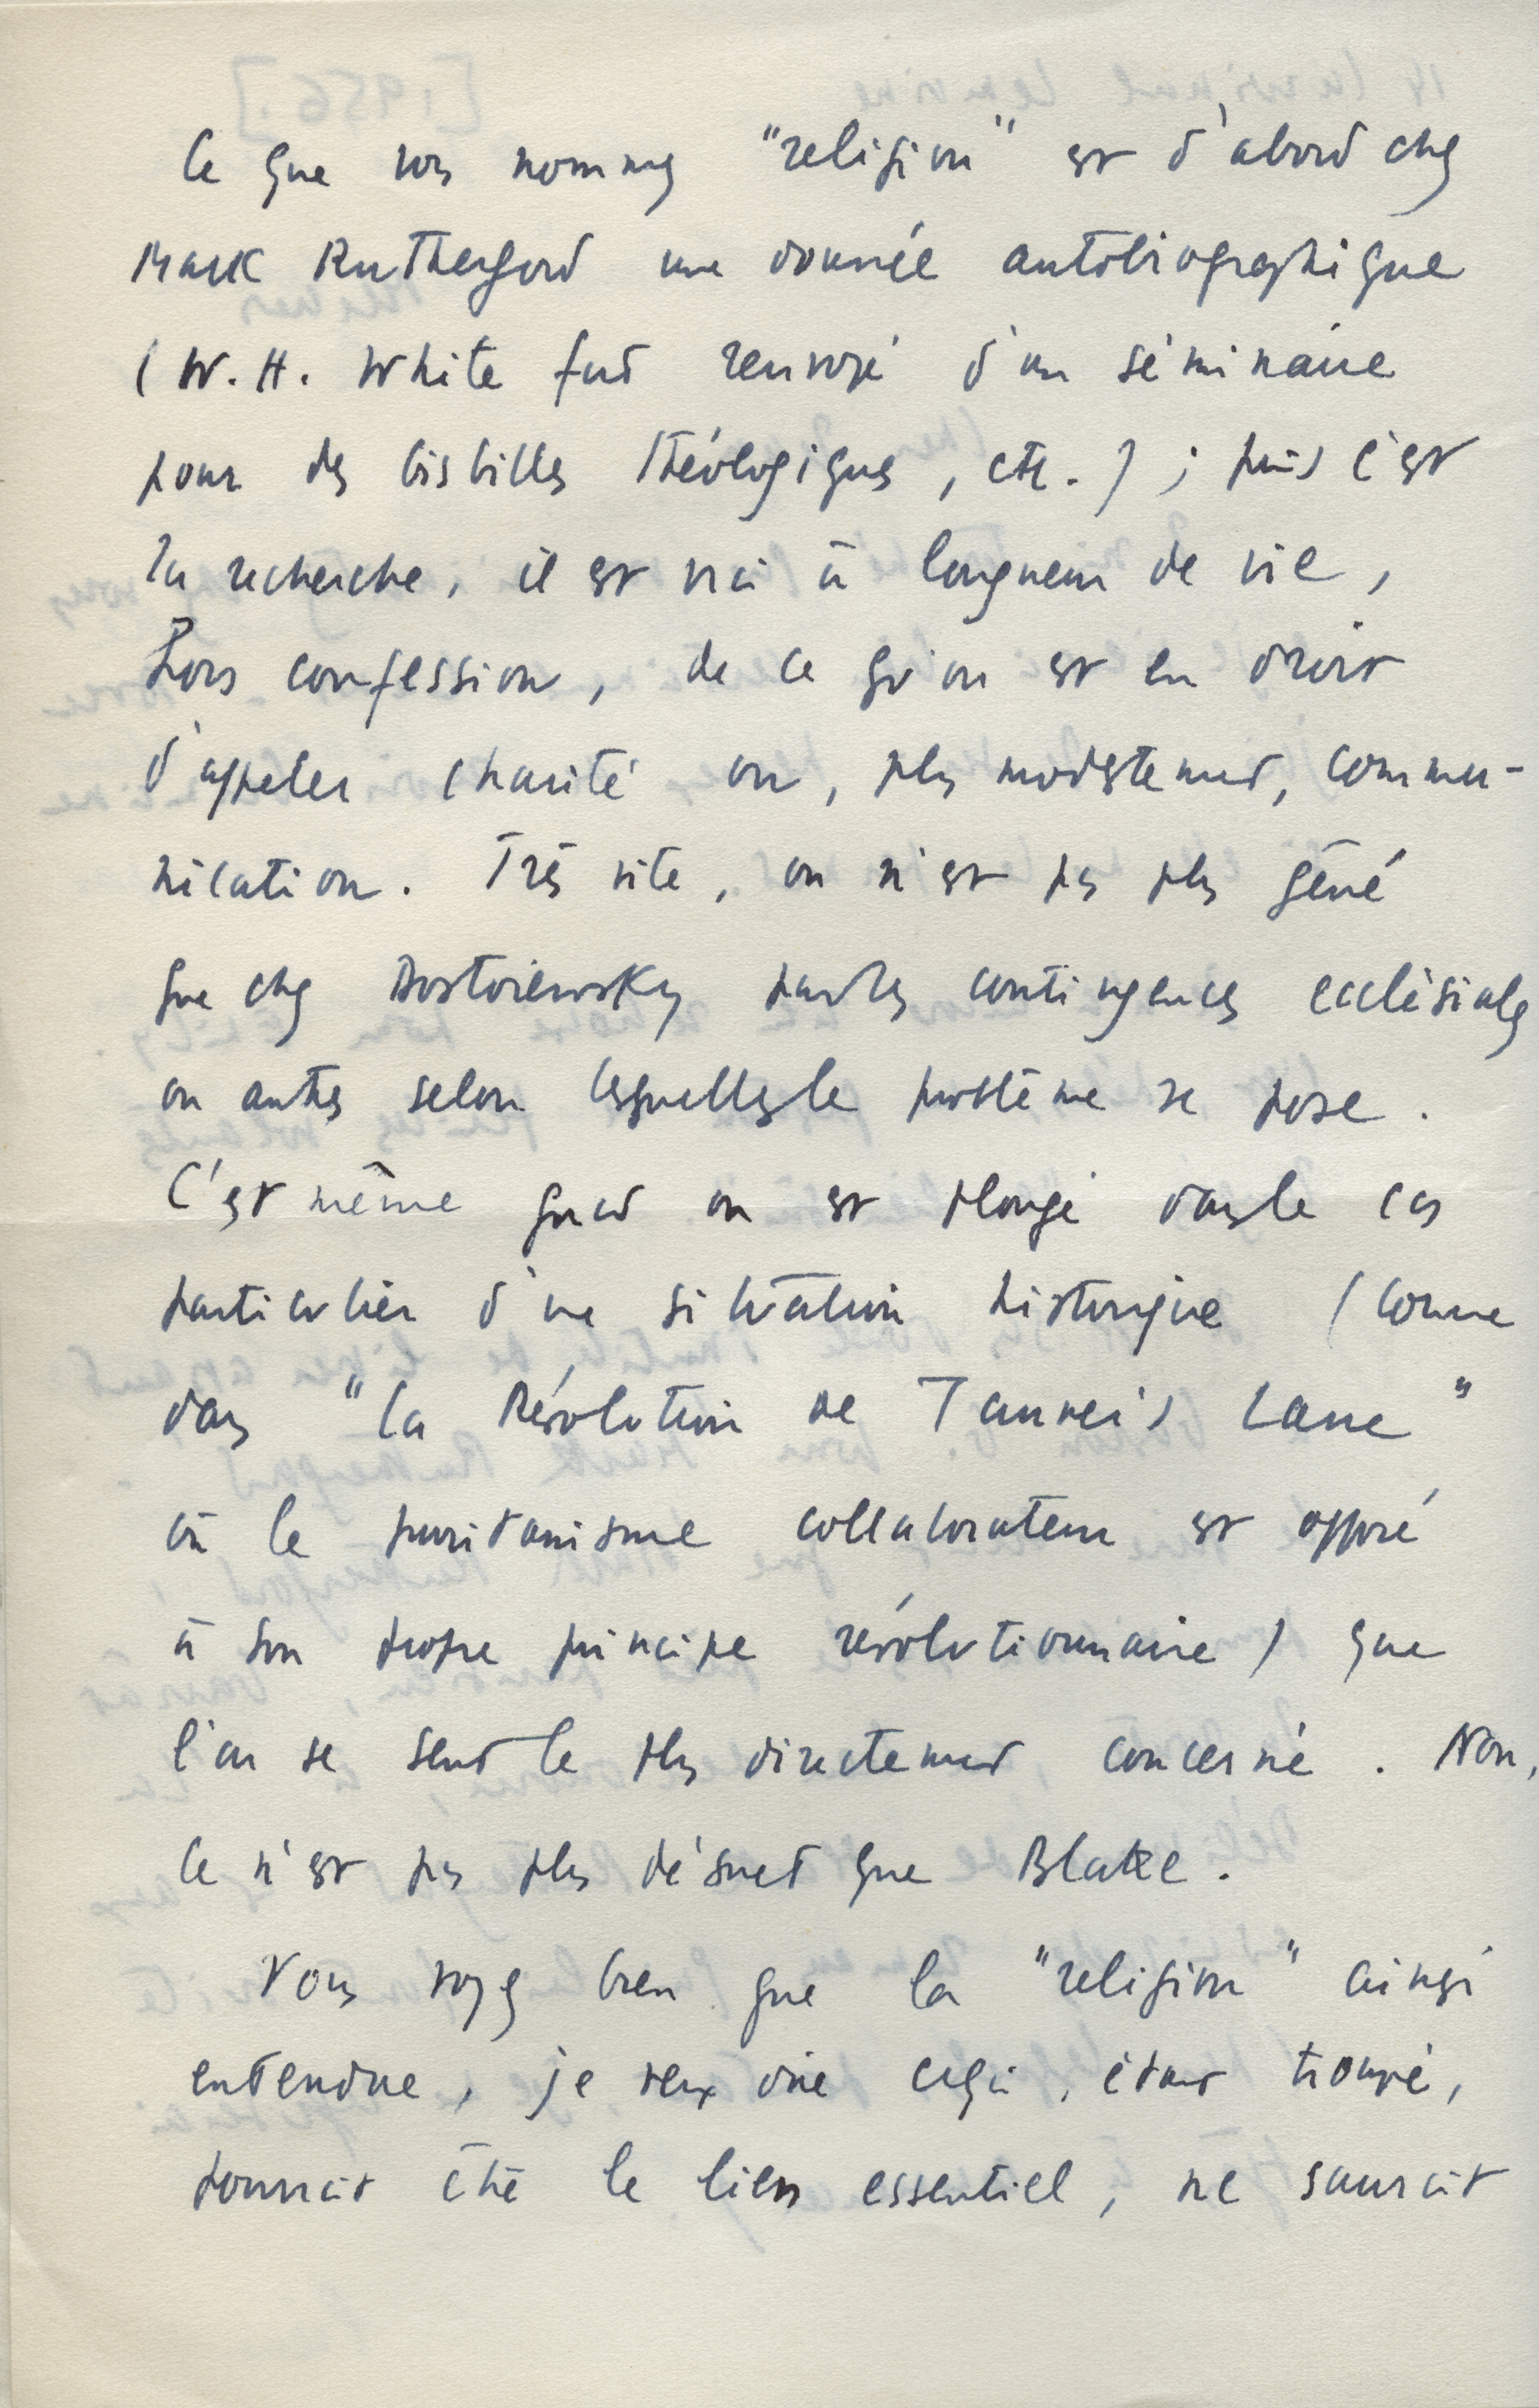 Ce que vous nommez "religion" est d'abord chez
Mark Rutherford une donnée autobiographique
(W.H. White fut renvoyé d'un séminaire
pour des bisbilles théologiques, etc.) ; puis c'est
la recherche, il est vrai à longueur de vie,
hors confession, de ce qu'on est en droit
d'appeler charité ou, plus modestement, commu-
nication. Très vite, on n'est pas plus gêné
que chez Dostoïewsky par les contingences ecclésiales
ou autres selon lesquelles le problème se pose.
C'est même quand on est plongé dans le cas
particulier d'une situation historique (comme
dans "La Révolution de Tanner's Lane"
où le puritanisme collaborateur est opposé
à son propre principe révolutionnaire) que
l'on se sent le plus directement concerné. Non,
ce n'est pas plus désuet que Blake.
Vous voyez bien que la "religion" ainsi
entendue, je veux dire ceci, étant trouvé,
pourrait être le lien essentiel, ne saurait